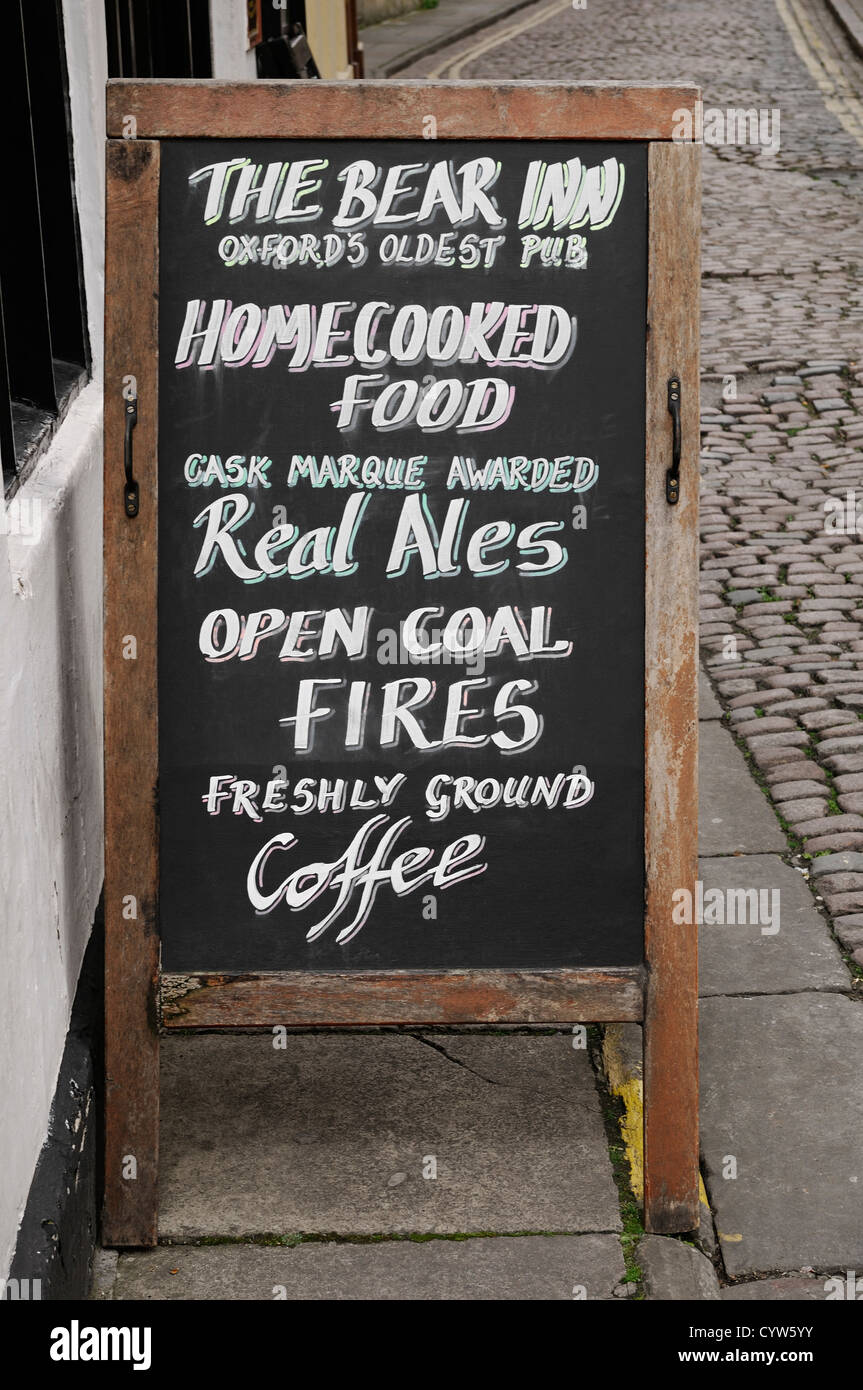 THE BEAR INN
OXFORD'S OLDEST PUB
HOMECOOKED
FOOD
CASK MARQUE AWARDED
Real Ales
OPEN COAL
FIRES
FRESHLY GROUND
Coffee
alamy stock photo
CYW5YY
www.alamy.com